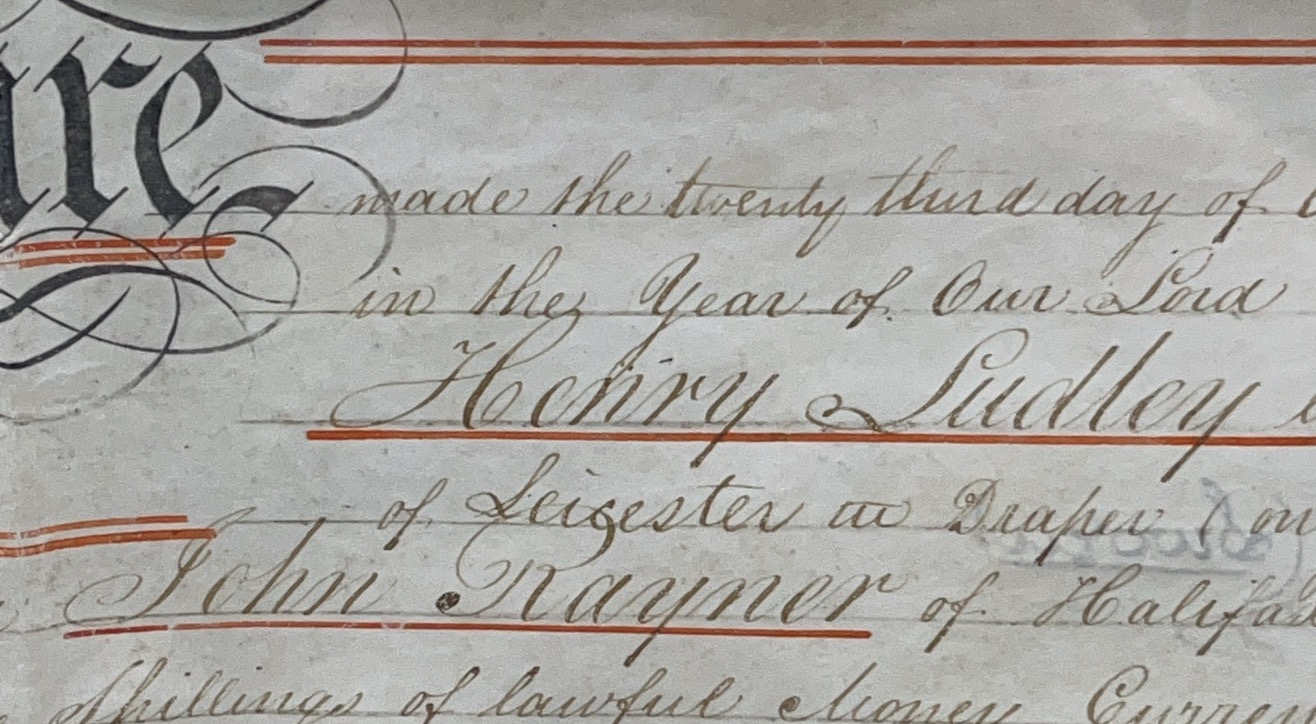 ure made the twenty third day of
in the Year of Our Lord
Henry Ludley
of Leicester Draper on
John Rayner of Halifax
Shillings of lawful Money Curren